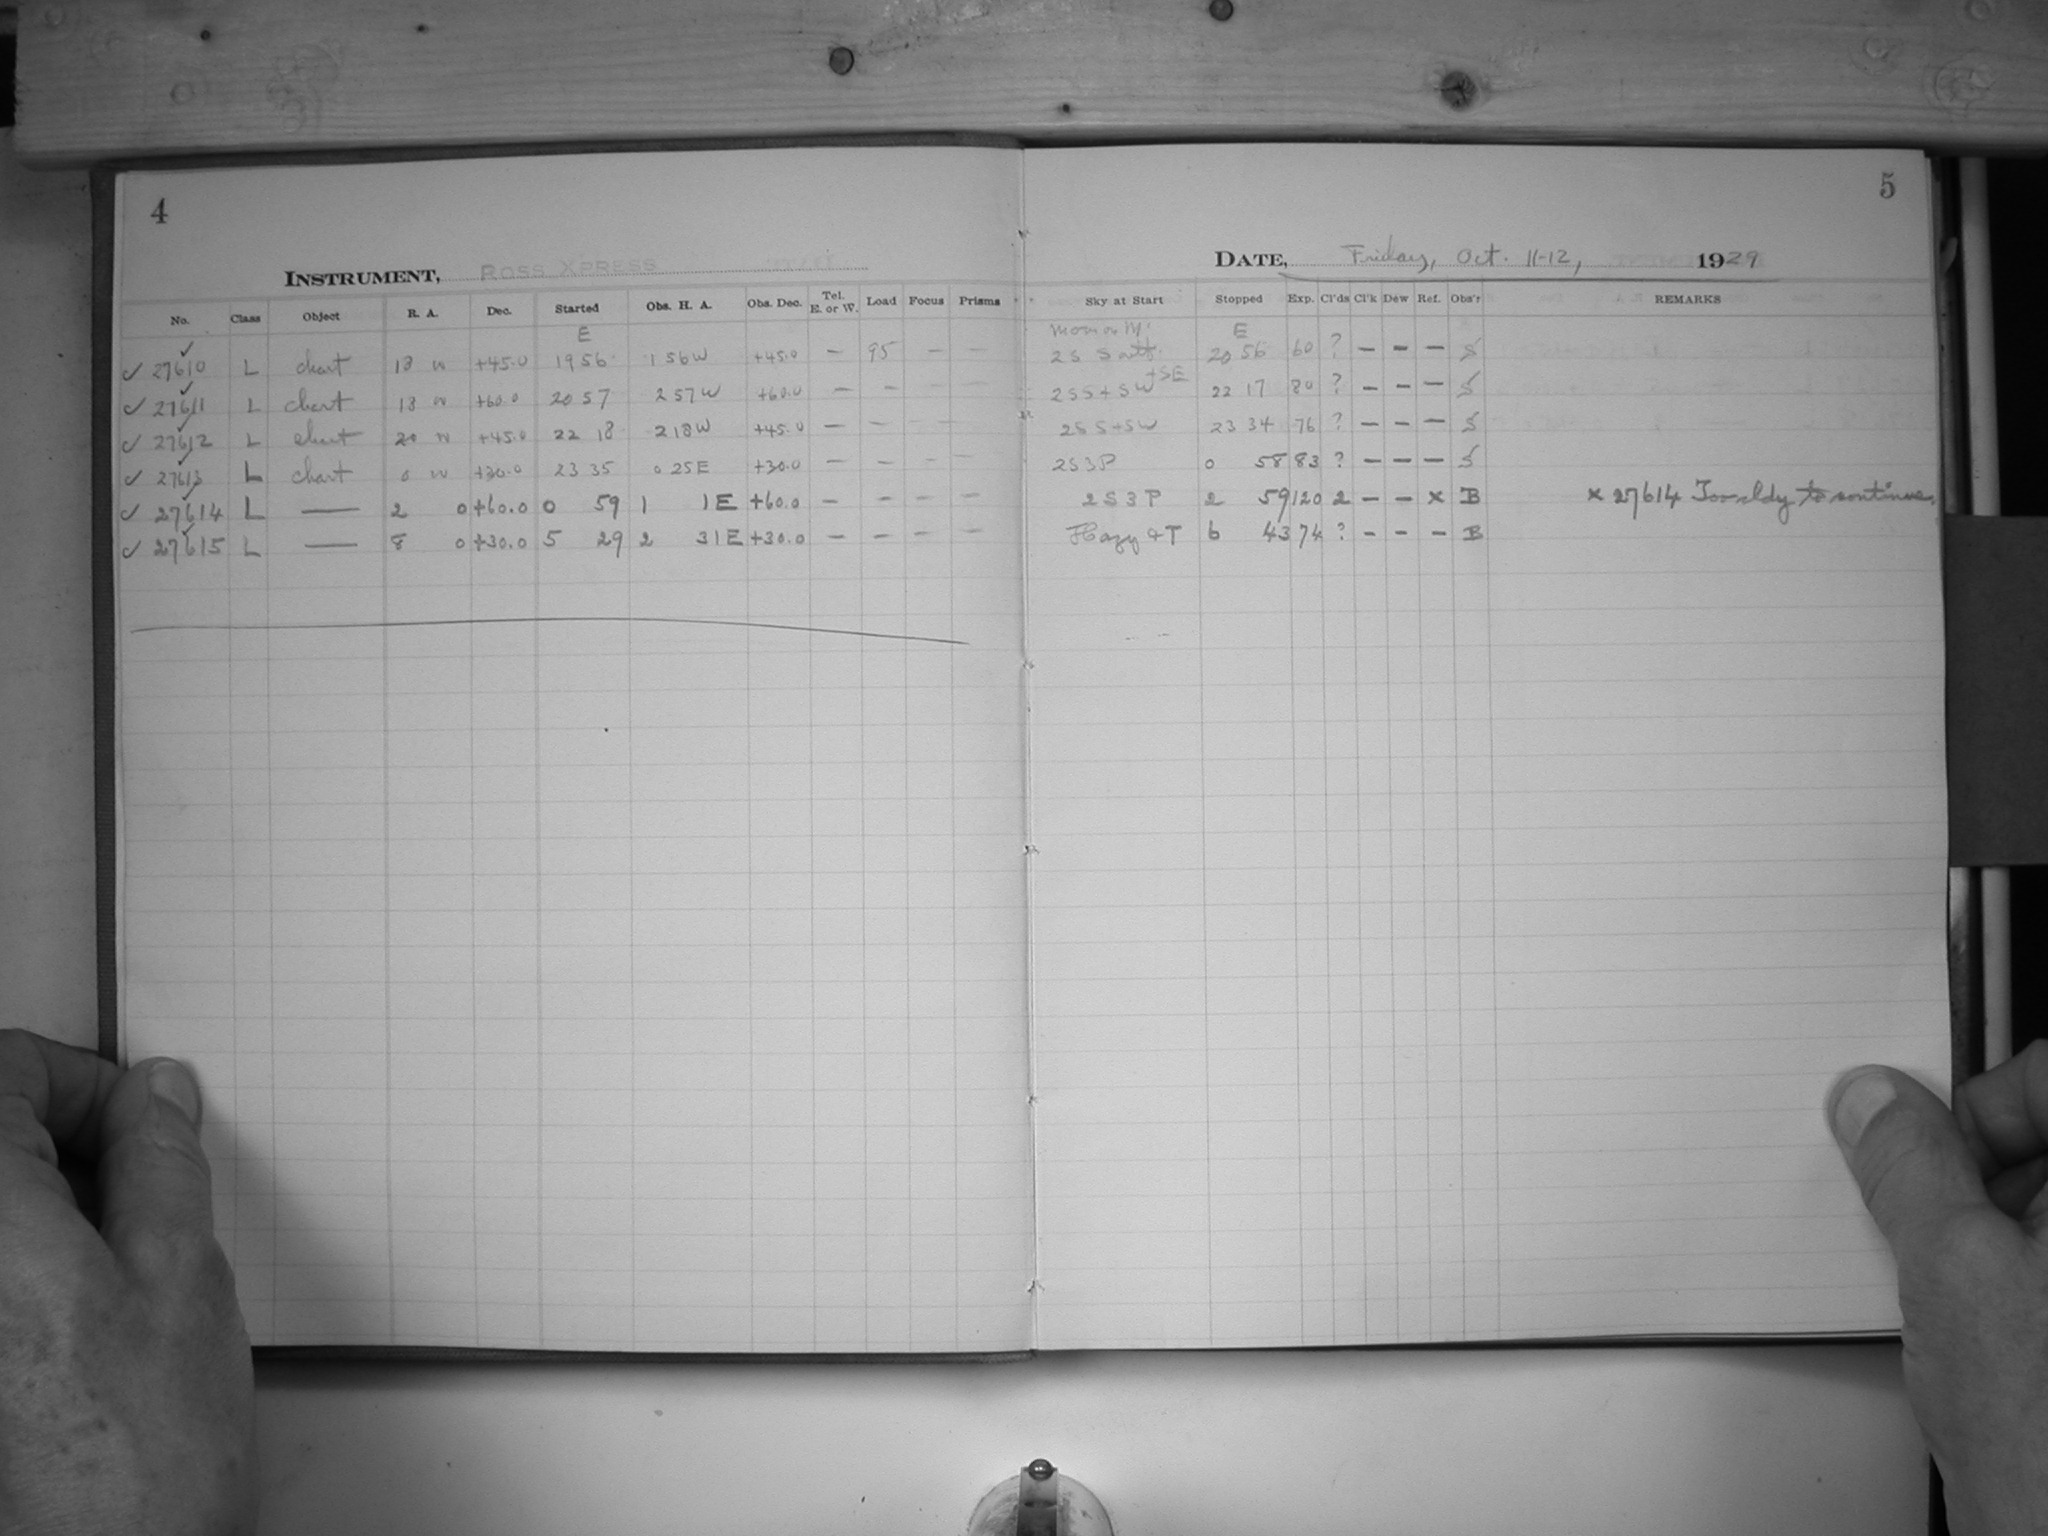 4
INSTRUMENT, ROSS XPRESS
No. Class Object R. A. Dec. Started Obs. H. A. Obs. Dec. Tel. E. or W. Load Focus Prisms
E
✓ 27610 L chart 18 +45.0 19 56 1 56 W +45.0 — 95 — —
✓ 27611 L chart 18 +60.0 20 57 2 57 W +60.0 — — — —
✓ 27612 L chart 20 +45.0 22 18 2 18 W +45.0 — — — —
✓ 27613 L chart 0 +30.0 23 35 0 25 E +30.0 — — — —
✓ 27614 L — 2 0 +60.0 0 59 1 1 E +60.0 — — — —
✓ 27615 L — 8 0 +30.0 5 29 2 31 E +30.0 — — — —
5
DATE, Friday, Oct. 11-12, 1929
Sky at Start Stopped Exp. Cl'ds Cl'k Dew Ref. Obs'r REMARKS
E
2S 20 56 60 ? — — — S
2SS+SW+SE 22 17 80 ? — — — S
2SS+SW 23 34 76 ? — — — S
2S3P 0 58 83 ? — — — S
2S3P 2 59 120 2 — — x B x 27614 Too cldy to continue.
Hazy + T 6 43 74 ? — — — B